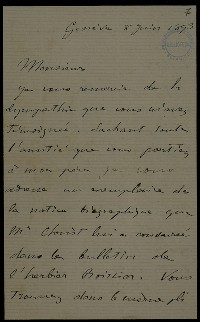 7
Genève 8 Juin 1893
Monsieur
Je vous remercie de la
sympathie que vous m'avez
témoignée. Sachant toute
l'amitié que vous portiez
à mon père je vous
adresse un exemplaire de
la notice biographique que
Mr Christ lui a consacré
dans le bulletin de
l'herbier Boissier. Vous
trouverez dans le même pli